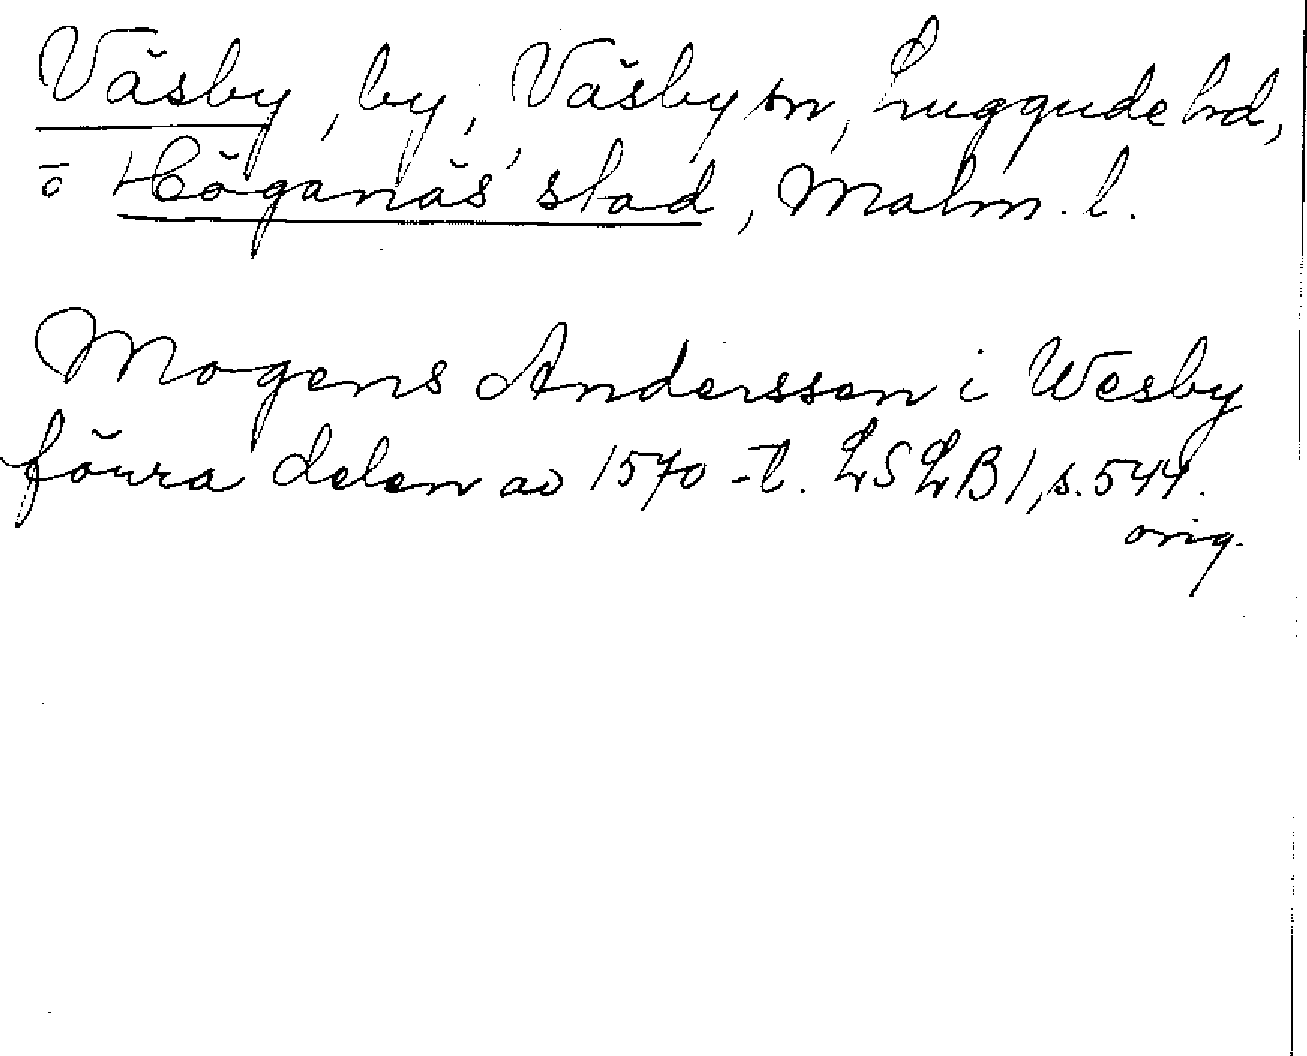 Väsby, by, Väsby sn, Luggude hd,
ö Höganäs stad, Malm. l.
Mogens Anderssen i Wesby
förra delen av 1570-t. LSLB 1, s. 544.
orig.